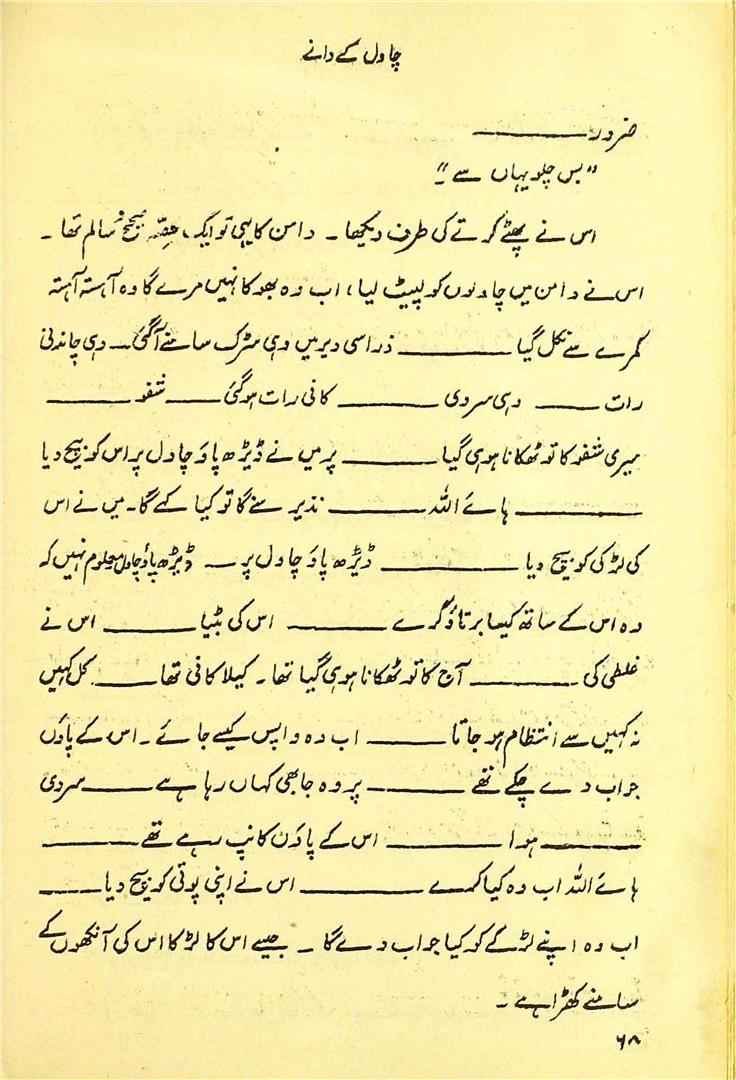 چاول کے دانے
ضرور ———
"بس چلو یہاں سے"۔
اس نے پھٹے کرتے کی طرف دیکھا۔ دامن کا یہی تو ایک حصّہ صحیح و سالم تھا۔
اس نے دامن میں چاولوں کو لپیٹ لیا، اب وہ بھوکا نہیں مرے گا وہ آہستہ آہستہ
کمرے سے نکل گیا ——— ذرا سی دیر میں وہی سڑک سامنے آگئی — وہی چاندنی
رات — وہی سردی ——— کافی رات ہوگئی —— شفو ———
میری شفو کا تو ٹھکانا ہو ہی گیا ——— پر میں نے ڈیڑھ پاؤ چاول پر اس کو بیچ دیا
——— ہائے اللہ ——— نذیر سنے گا تو کیا کہے گا۔ میں نے اس
کی لڑکی کو بیچ دیا ——— ڈیڑھ پاؤ چاول پر — ڈیڑھ پاؤ چاول معلوم نہیں کہ
وہ اس کے ساتھ کیسا برتاؤ کرے ——— اس کی بٹیا ——— اس نے
غلطی کی ——— آج کا تو ٹھکانا ہو ہی گیا تھا۔ کیلا کافی تھا —— کل کہیں
نہ کہیں سے انتظام ہو جاتا ——— اب وہ واپس کیسے جائے۔ اس کے پاؤں
جواب دے چکے تھے ——— پر وہ جا بھی کہاں رہا ہے —— سردی
——— ہوا ——— اس کے پاؤں کانپ رہے تھے ———
ہائے اللہ اب وہ کیا کرے ——— اس نے اپنی پوتی کو بیچ دیا ——
اب وہ اپنے لڑکے کو کیا جواب دے گا۔ جیسے اس کا لڑکا اس کی آنکھوں کے
سامنے کھڑا ہے۔
۶۸